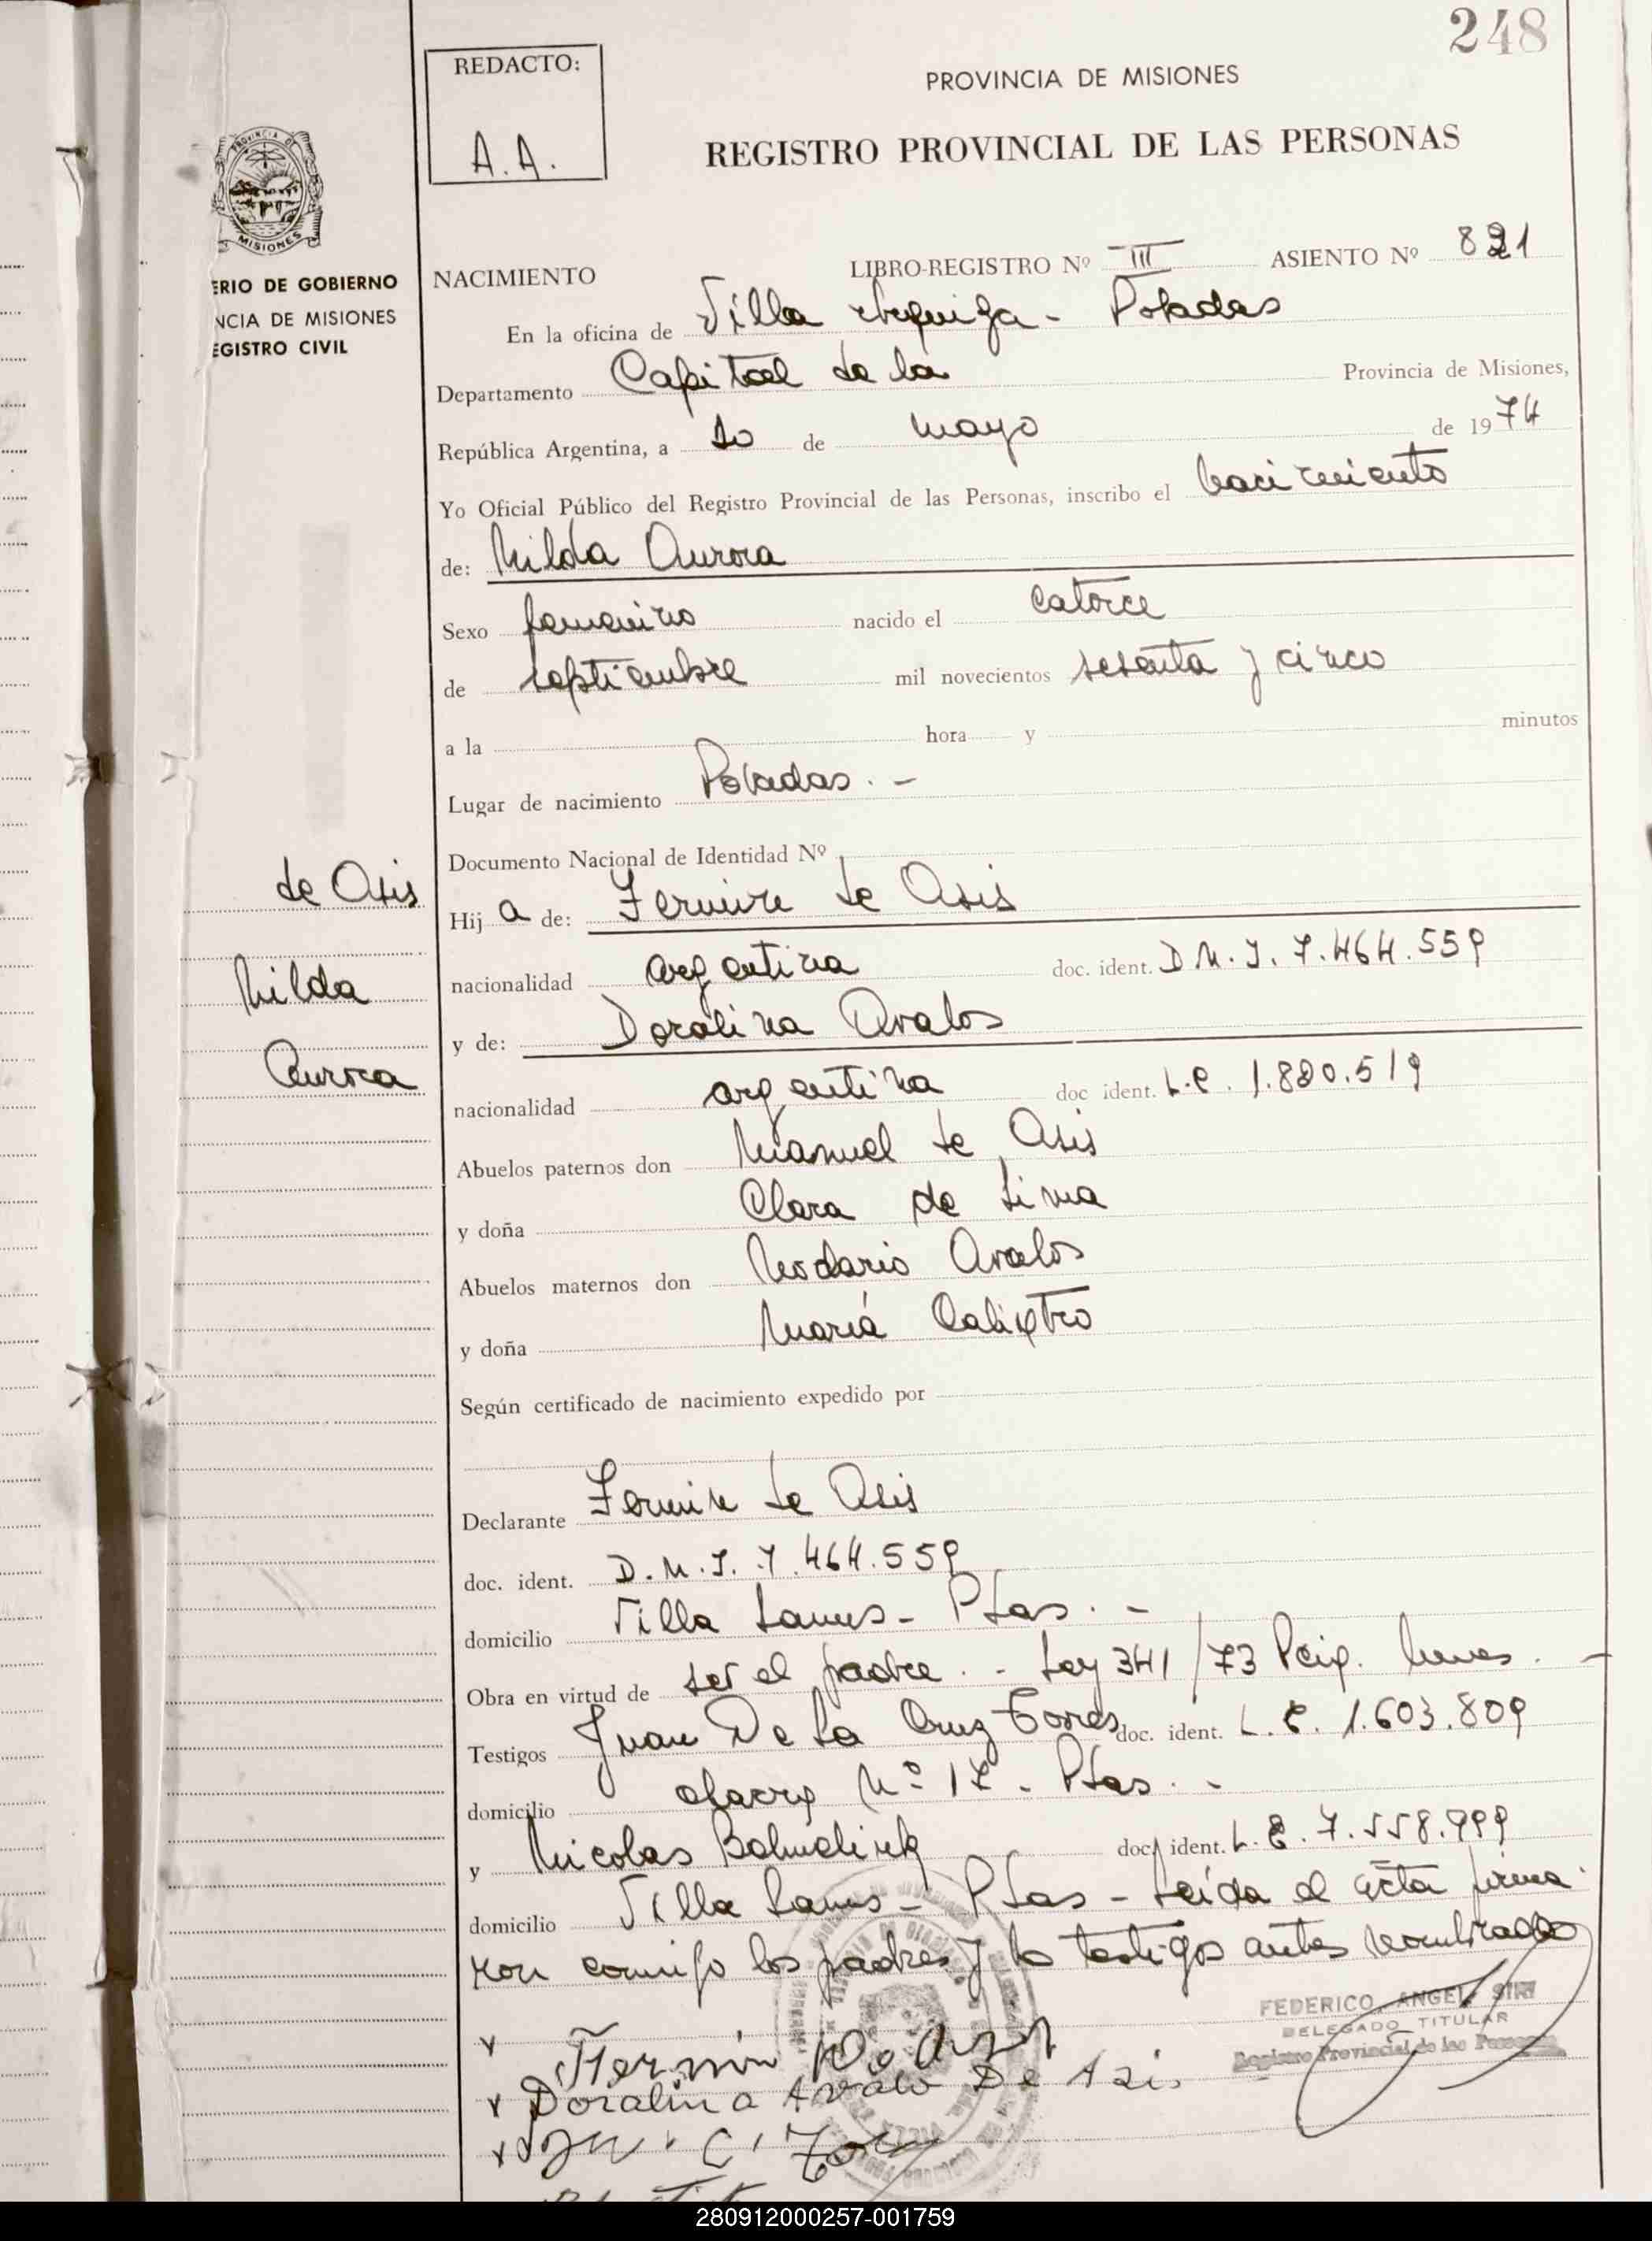 248
REDACTO:
A.A.
PROVINCIA DE MISIONES
REGISTRO PROVINCIAL DE LAS PERSONAS
PROVINCIA DE
MISIONES
ERIO DE GOBIERNO
NCIA DE MISIONES
EGISTRO CIVIL
NACIMIENTO LIBRO-REGISTRO Nº III ASIENTO Nº 821
En la oficina de Villa Urquiza - Posadas
Departamento Capital de la Provincia de Misiones,
República Argentina, a 10 de mayo de 1974
Yo Oficial Público del Registro Provincial de las Personas, inscribo el nacimiento
de: Nilda Aurora
Sexo femenino nacido el catorce
de septiembre mil novecientos sesenta y cinco
a la hora y minutos
Lugar de nacimiento Posadas. -
Documento Nacional de Identidad Nº
de Asis
Nilda
Aurora
Hij a de: Fermin de Asis
nacionalidad argentina doc. ident. D.M.I. 7.464.559
y de: Doralina Avalos
nacionalidad argentina doc ident. L.C. 1.880.519
Abuelos paternos don Manuel de Asis
y doña Clara de Lima
Abuelos maternos don Avalos
y doña María Calixtro
Según certificado de nacimiento expedido por
Declarante Fermin de Asis
doc. ident. D.M.I. 7.464.559
domicilio Villa Lanus - Pdas. -
Obra en virtud de ser el padre. - Ley 341/73
Testigos Juan De La Cruz Torres doc. ident. L.E. 1.603.809
domicilio Nº 17 - Pdas. -
y Nicolas doc. ident. L.E. 7.558.999
domicilio Villa Lanus - Pdas - Leída el acta firma
ron conmigo los padres y los testigos antes nombrados
FEDERICO ANGEL SIRI
DELEGADO TITULAR
Registro Provincial de las Personas
Fermin De
Doralina Avalo De Asis
280912000257-001759